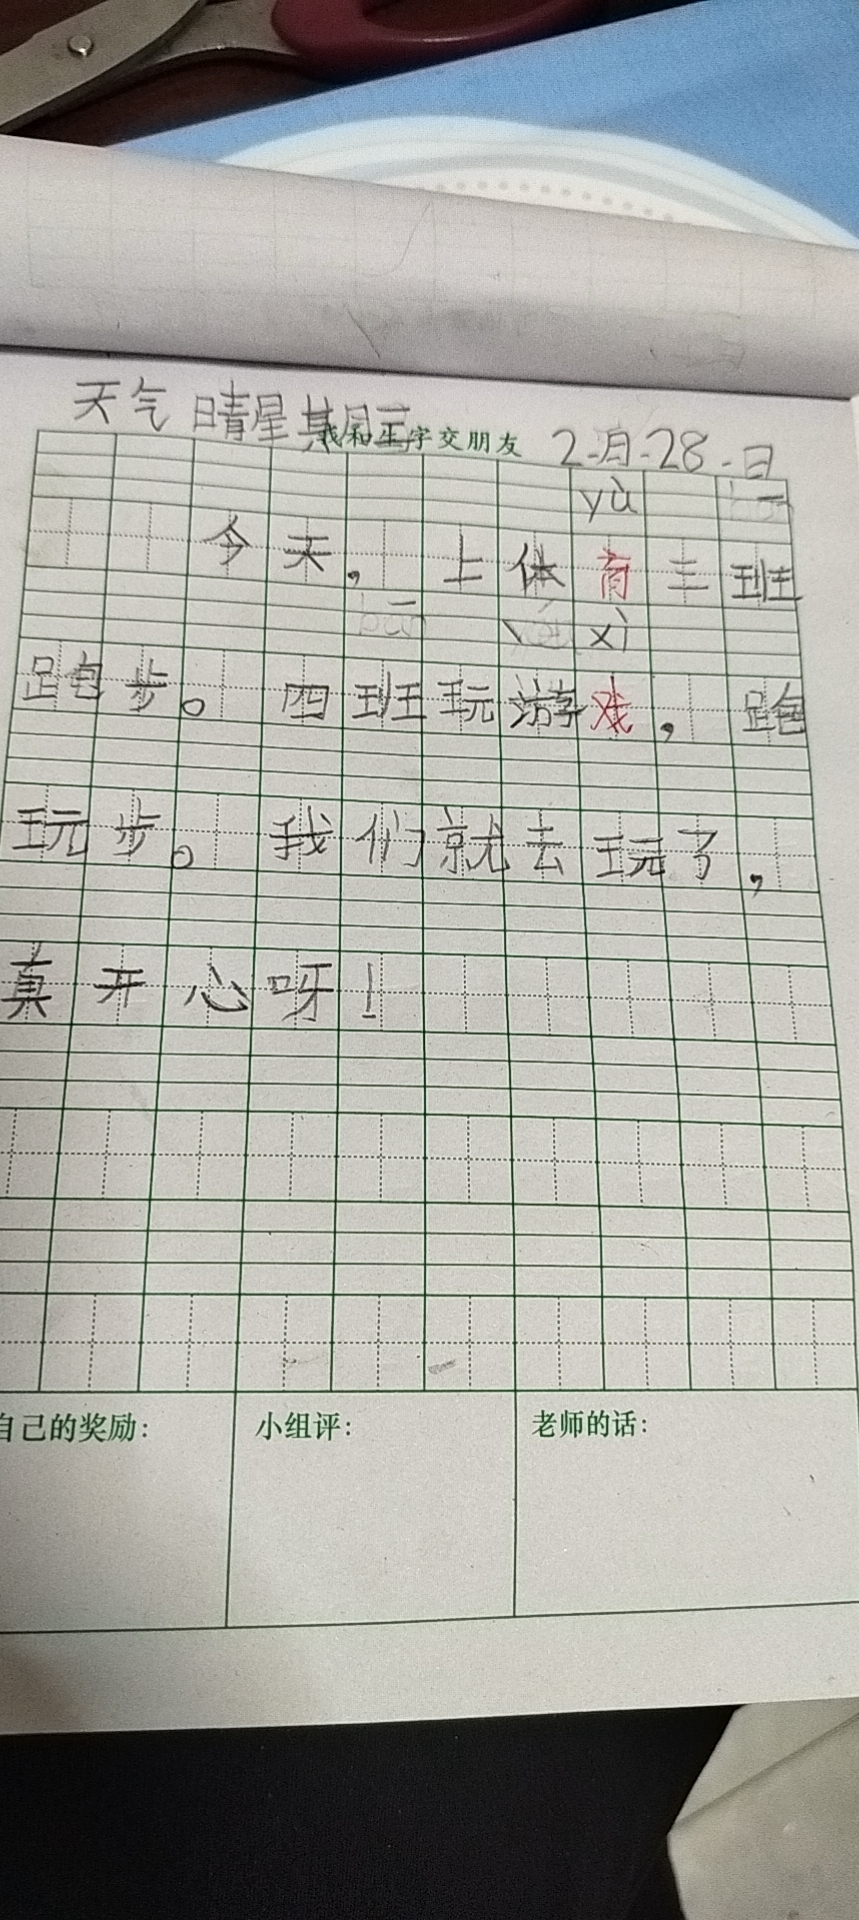 天气 晴 星其月三
我和生字交朋友
2-月-28-日
yù
今天，上体育三班
xì
跑步。四班玩游戏，跑
玩步。我们就去玩了，
真开心呀！
自己的奖励：
小组评：
老师的话：